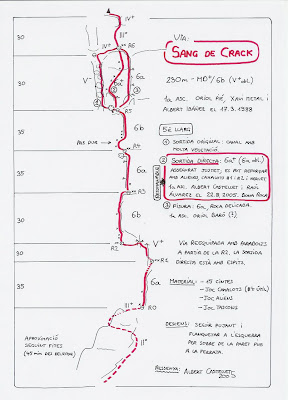 VIA:
SANG DE CRACK
230m - MD+/6b (V+obl.)
1a ASC. ORIOL RIÉ, XAVI METAL I
ALBERT IBÁÑEZ EL 17.3.1998
5è LLARG
① SORTIDA ORIGINAL: CANAL AMB
MOLTA VEGETACIÓ.
② SORTIDA DIRECTA: 6a+ (6a obl.)
ASSEGURAT JUSTET, ES POT REFORÇAR
AMB ALIENS, CAMALOTS #1 i #2 I
1a ASC. ALBERT CASTELLET I RAÚL
ÁLVAREZ EL 22.8.2005. BONA ROCA
RECOMANABLE
③ FISURA: 6a, ROCA DELICADA.
1a ASC. ORIOL BARÓ (?)
VIA REEQUIPADA AMB PARABOLTS
A PARTIR DE LA R2, LA SORTIDA
DIRECTA ESTÀ AMB ESPITS.
MATERIAL: - 15 CINTES
- JOC CAMALOTS
- JOC ALIENS
- JOC TASCONS
DESCENS: SEGUIR PUJANT I
FLANQUEJAR A L'ESQUERRA
PER SOBRE DE LA PARET FINS A
LA FERRADA.
RESSENYA: ALBERT CASTELLET
2005
IV+
II+
IV+
R6
30
V-
6a
6a+
①
②
③
R5
35
6b
PAS DUR
R4
30
6a
R3
30
6b
R2
V+
R1
35
6a
R0
III+
II+
APROXIMACIÓ
SEGUINT FITES
(45 min DES